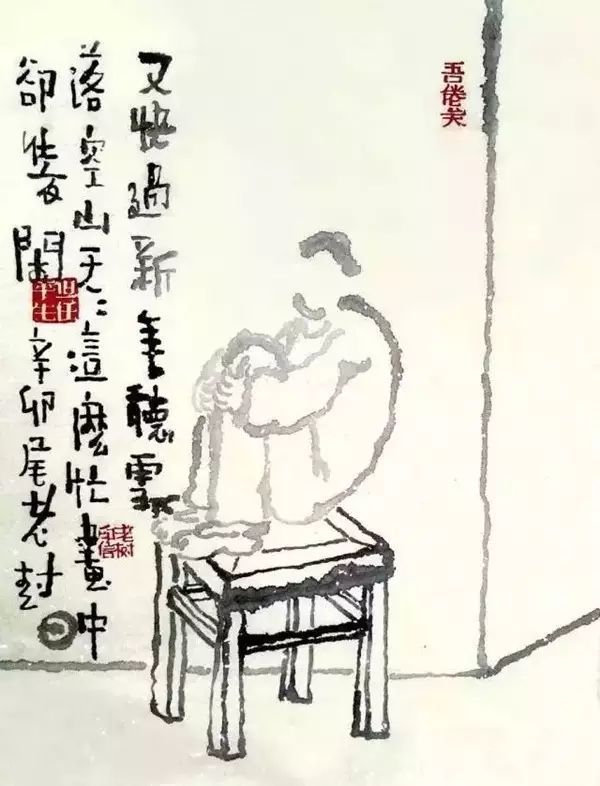 吾倦矣
又快過新年聽雪
落空山天〻這麼忙畫中
卻裝閑 辛卯尾老